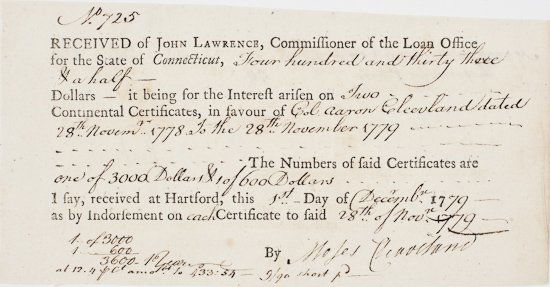 No. 725
RECEIVED of JOHN LAWRENCE, Commissioner of the Loan Office
for the State of Connecticut, Four hundred and thirty three
& a half —
Dollars — it being for the Interest arisen on Two
Continental Certificates, in favour of Col. Aaron Cleavland dated
28th. Novemr. 1778 To the 28th November 1779
The Numbers of said Certificates are
one of 3000 Dollars & 1 of 600 Dollars
I say, received at Hartford, this 1st Day of Decembr. 1779
as by Indorsement on each Certificate to said 28th of Novr. 1779
1 of 3000
1 600
3600 1 Year
at 12.4 p Ct. amot. to 433.54 — short pd
By Moses Cleaveland